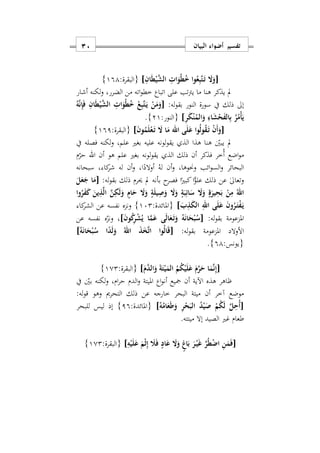 ٣٠ تفسير أضواء البيان
[وَلَا تَتَّبِعُوا خُطُوَاتِ الشَّيْطَانِ] {البقرة:١٦٨}
لم يذكر هنا ما يترتب على اتباع خطواته من الضرر، ولكنه أشار
إلى ذلك في سورة النور بقوله: [وَمَنْ يَتَّبِعْ خُطُوَاتِ الشَّيْطَانِ فَإِنَّهُ
يَأْمُرُ بِالْفَحْشَاءِ وَالْمُنْكَرِ] {النور:٢١}.
[وَأَنْ تَقُولُوا عَلَى اللَّهِ مَا لَا تَعْلَمُونَ] {البقرة:١٦٩}
لم يبين هنا هذا الذي يقولونه عليه بغير علم، ولكنه فصله في
مواضع أخر فذكر أن ذلك الذي يقولونه بغير علم هو أن الله حرّم
البحائر والسوائب ونحوها، وأن له أولادًا، وأن له شركاء، سبحانه
وتعالى عن ذلك علوًّا كبيرًا فصرح بأنه لم يحرم ذلك بقوله: [مَا جَعَلَ
اللَّهُ مِنْ بَحِيرَةٍ وَلَا سَائِبَةٍ وَلَا وَصِيلَةٍ وَلَا حَامٍ وَلَكِنَّ الَّذِينَ كَفَرُوا
يَفْتَرُونَ عَلَى اللَّهِ الْكَذِبَ] {المائدة:١٠٣} ونزه نفسه عن الشركاء
المزعومة بقوله: [سُبْحَانَهُ وَتَعَالَى عَمَّا يُشْرِكُونَ]، ونزّه نفسه عن
الأولاد المزعومة بقوله: [قَالُوا اتَّخَذَ اللَّهُ وَلَدًا سُبْحَانَهُ]
{يونس:٦٨}.
[إِنَّمَا حَرَّمَ عَلَيْكُمُ الْمَيْتَةَ وَالدَّمَ] {البقرة:١٧٣}
ظاهر هذه الآية أن جميع أنواع الميتة والدم حرام، ولكنه بيّن في
موضع آخر أن ميتة البحر خارجه عن ذلك التحريم وهو قوله:
[أُحِلَّ لَكُمْ صَيْدُ الْبَحْرِ وَطَعَامُهُ] {المائدة:٩٦} إذ ليس للبحر
طعام غير الصيد إلا ميتته.
[فَمَنِ اضْطُرَّ غَيْرَ بَاغٍ وَلَا عَادٍ فَلَا إِثْمَ عَلَيْهِ] {البقرة:١٧٣}